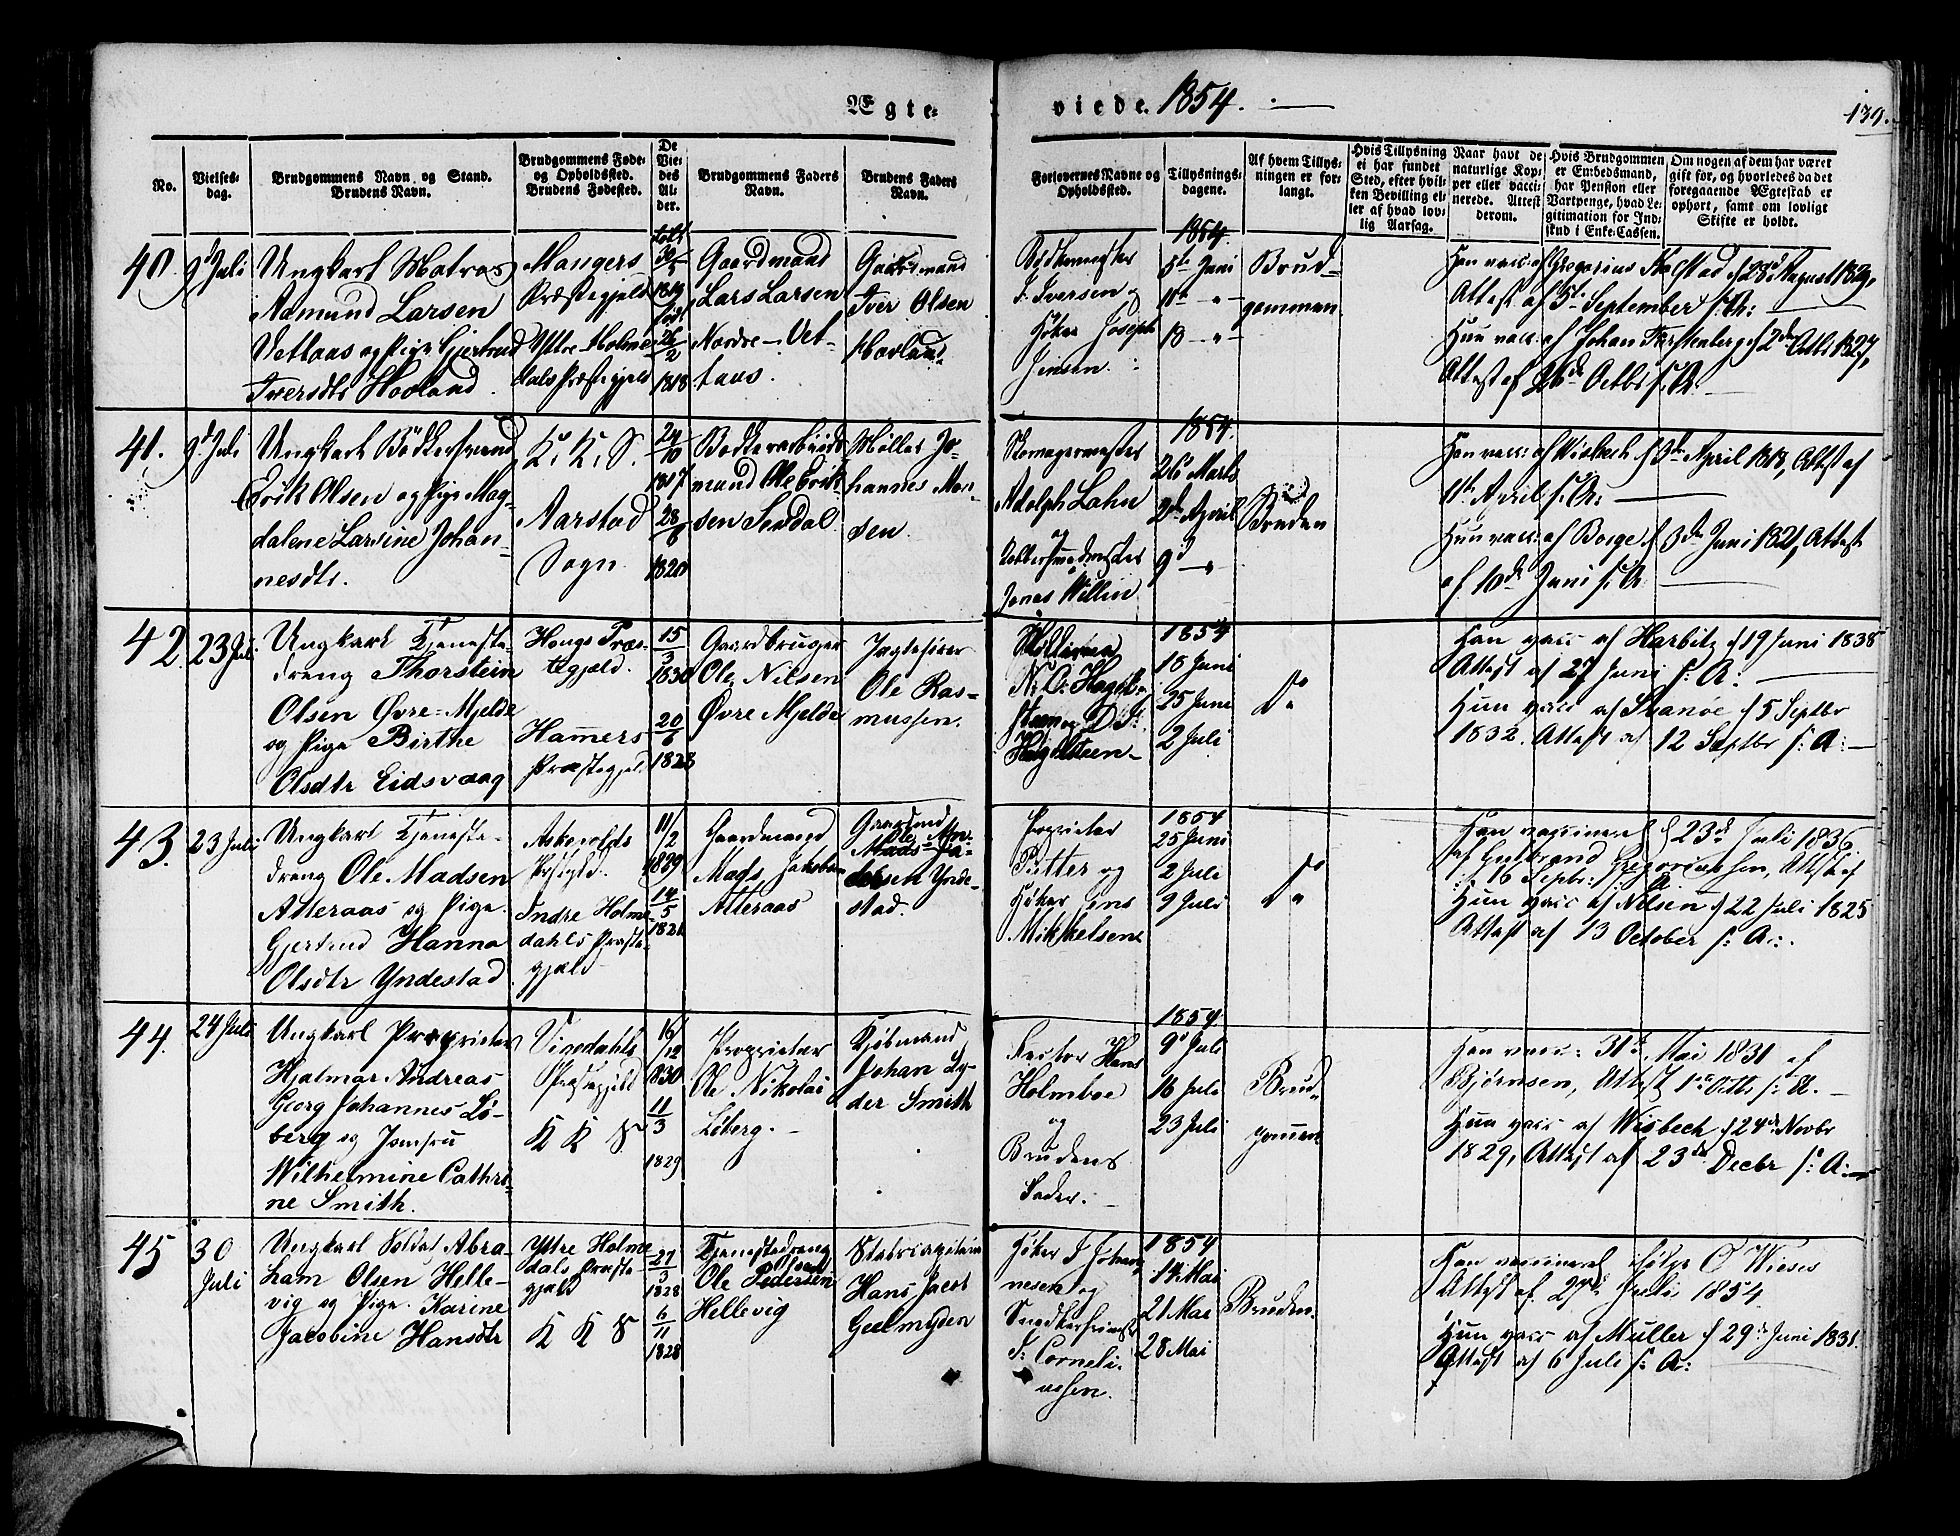 Ægte-
viede 1854.
139.
No.
Vielses-
dag.
Brudgommens Navn og Stand.
Brudens Navn.
Brudgommens Føde-
og Opholdssted.
Brudens Fødested.
De
Vie-
des
Al-
der.
Brudgommens Faders
Navn.
Brudens Faders
Navn.
Forlovernes Navne og
Opholdssted.
Tillysnings-
dagene.
Af hvem Tillys-
ningen er for-
langt.
Hvis Tillysning
ei har fundet
Sted, efter hvil-
ken Bevilling el-
ler af hvad lov-
lig Aarsag.
Naar havt de
naturlige Kop-
per eller vacci-
nerede. Attest
derom.
Hvis Brudgommen
er Embedsmand,
har Pension eller
Vartpenge, hvad Le-
gitimation for Ind-
skud i Enke-Cassen.
Om nogen af dem har været
gift før, og hvorledes da det
foregaaende Ægteskab er
ophørt, samt om lovligt
Skifte er holdt.
40.
9d Juli
Ungkarl Matros
Aamund Larsen
Vetlaas og Pige Gjertrud
Iversdtr Hovland.
Mangers
Præstegjeld
Yttre Holme-
dals Præstegjeld
født
30/5
1819
født
26/2
1818
Gaardmand
Lars Larsen
Nordre-Vet-
laas.
Gaardmand
Iver Olsen
Hovland.
Bødkermester
I. Iversen og
Høker Joseph
Jensen.
1854.
5te Juni
11te "
18 "
Brud-
gommen
Han vacc: af Gregorius Kalstad d 28d August 1829,
Attest af 5te September s: A:
Hun vacc: af Johan Forstenberg d 2den Octb: 1827,
Attest af 26de Octbr s: A.
41.
9d Juli
Ungkarl Bödkersvend
Erik Olsen og Pige Mag-
dalene Larsine Johan-
nesdtr.
K. K. S.
Aarstad
Sogn
24/10
1817
28/6
1820
Bødkerarbeids-
mand Ole Erik-
sen Sandal.
Møller Jo-
hannes Mon-
sen.
Skomagermester
Adolph Lahn
og
Jonas Willin
1854.
26 Marts
2den April
9d "
Bruden
Han vacc: af Wisbech d 3de April 1818, Attest af
11te April s: A:
Hun vacc: af Borge d 3de Juni 1821, Attest
af 10de Juni s: A.
42.
23 Juli
Ungkarl Tjeneste-
dreng Thorstein
Olsen Øvre-Mjelde
og Pige Birthe
Olsdtr Eidsvaag
Hougs Præs-
tegjeld.
Hamers
Præstegjel.
15/3
1830
20/6
1828
Gaardbruger
Ole Nilsen
Øvre Mjelde
Jagteskipper
Ole Ras-
mussen.
N. C. Hagel-
steen og D. J.
Hagelsteen
1854
18 Juni
25 Juni
2 Juli
Do
Han vacc af Harbitz d 19 Juni 1838
Attest af 27 Juni s: A:
Hun vacc af Svanøe d 5 Septbr
1832. Attest af 12 Septbr s: A:
43.
23 Juli
Ungkarl Tjeneste-
dreng Ole Madsen
Atteraas og Pige
Gjertrud Hanna
Olsdtr Yndestad
Askevolds
Præstegjeld.
Indre Holme-
dahls Præste-
gjæld
11/2
1829
14/5
1821
Gaardmand
Mads Jakobsen
Atteraas
Gaardmd
Ole An-
dersen Ynde-
stad.
Proprietær
Pitter og
Høker Jens
Mikkelsene
1854
25 Juni
2 Juli
9 Juli
Do
Han vaccineret d 23d Juli 1836
af Gulbrand Gregoriussen, Attest af
16 Septbr: s: A.
Hun vacc af Nilsen d 22 Juli 1825
Attest af 13 October s: A:.
44.
24 Juli
Ungkarl Proprietær
Hjalmar Andreas
Georg Johannes Lö-
berg og Jomfru
Wilhelmine Cathri-
ne Smith.
Vinedahls
Præstegjeld
K K S
16/12
1830
11/3
1829
Proprietær
Ole Nikolai
Löberg.
Kjøbmand
Johan Ly-
der Smith
Rector Hans
Holmboe
og
Brudens
Fader.
1854
9d Juli
16 Juli
23 Juli
Brud-
gommen
Han vacc: 31te Mai 1831 af
Bjørnsen, Attest 1ste Octb: s: A.
Hun vacc af Wisbech d 24de Novbr
1829, Attest af 23de Decbr s: A:
45
30
Juli
Ungkarl Soldat Abra-
ham Olsen Helle-
vig og Pige Karine
Jacobine Hansdtr
Yttre Holme-
dals Præste-
gjæld
K K S
27/3
1828
6/11
1828
Tjenestedreng
Ole Pedersen
Hellevig
Stabscapitain
Hans Jacob
Geelmyden
Høker I Johan-
nesen og
Snedkersvend
I: Corneli-
ussen.
1854
14 Mai
21 Mai
28 Mai
Bruden.
Han vaccineret ifølge O Wieses
Attest af 27de Juli 1854
Hun vacc af Müller d 29de Juni 1831.
Attest af 6 Juli s: A: